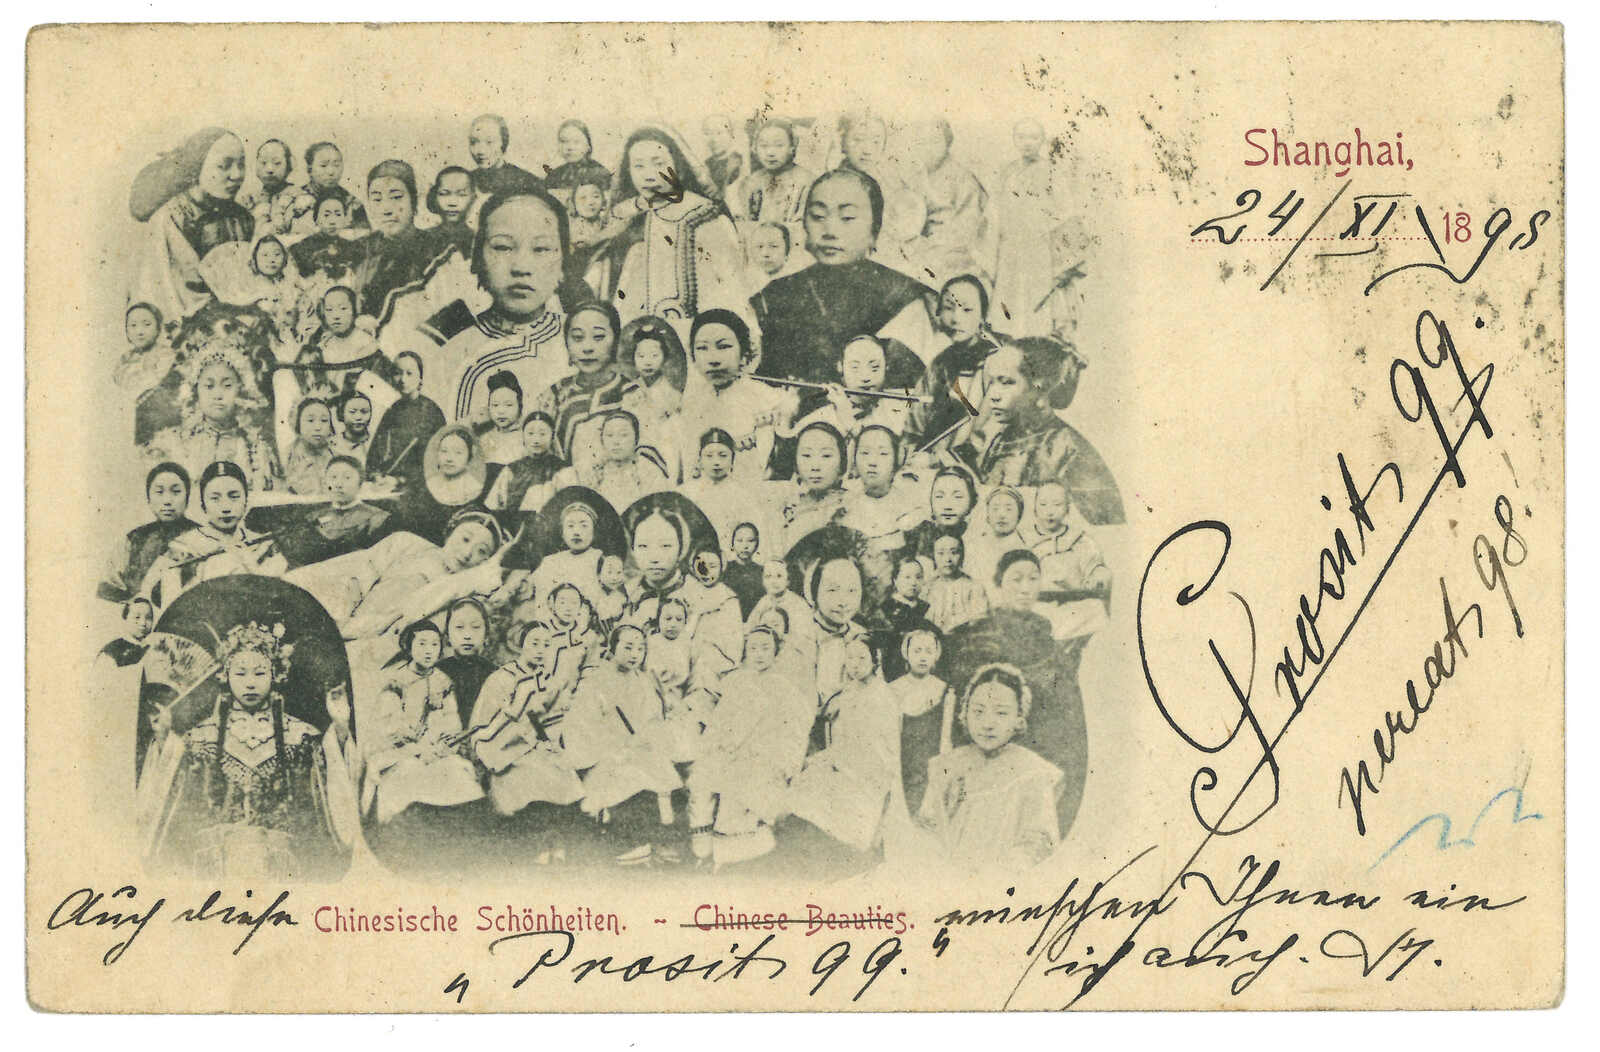 Shanghai,
24/XI 1898
Prosit 99.
pereat 98!
Auch diese Chinesische Schönheiten. ~ Chinese Beauties. wünschen Ihnen ein
„Prosit 99." ich auch.